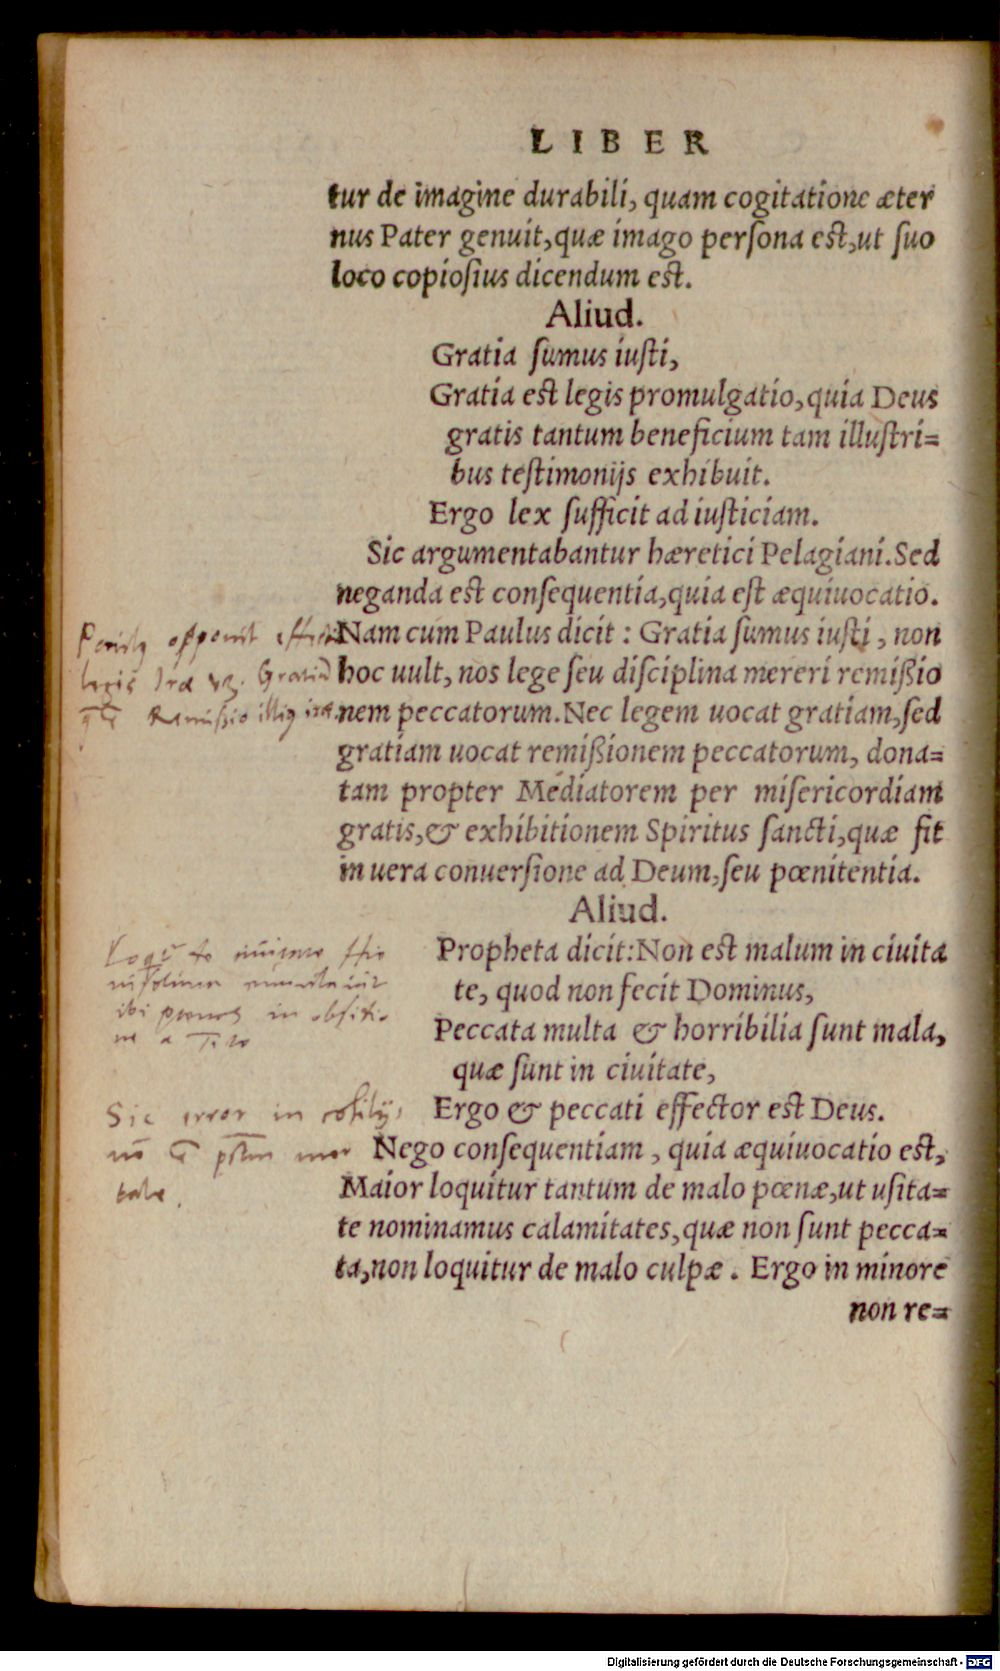 LIBER
tur de imagine durabili, quam cogitatione æter
nus Pater genuit, quæ imago persona est, ut suo
loco copiosius dicendum est.
Aliud.
Gratia sumus iusti,
Gratia est legis promulgatio, quia Deus
gratis tantum beneficium tam illustri=
bus testimonijs exhibuit.
Ergo lex sufficit ad iusticiam.
Sic argumentabantur hæretici Pelagiani. Sed
neganda est consequentia, quia est æquiuocatio.
opponit
Nam cum Paulus dicit : Gratia sumus iusti, non
legis
hoc uult, nos lege seu disciplina mereri remißio
Remißio
nem peccatorum. Nec legem uocat gratiam, sed
gratiam uocat remißionem peccatorum, dona=
tam propter Mediatorem per misericordiam
gratis, & exhibitionem Spiritus sancti, quæ fit
in uera conuersione ad Deum, seu pœnitentia.
Aliud.
Propheta dicit: Non est malum in ciuita
te, quod non fecit Dominus,
in
Peccata multa & horribilia sunt mala,
quæ sunt in ciuitate,
Sic error in
Ergo & peccati effector est Deus.
Nego consequentiam, quia æquiuocatio est,
Maior loquitur tantum de malo pœnæ, ut usita=
te nominamus calamitates, quæ non sunt pecca=
ta, non loquitur de malo culpæ. Ergo in minore
non re=
Digitalisierung gefördert durch die Deutsche Forschungsgemeinschaft - DFG